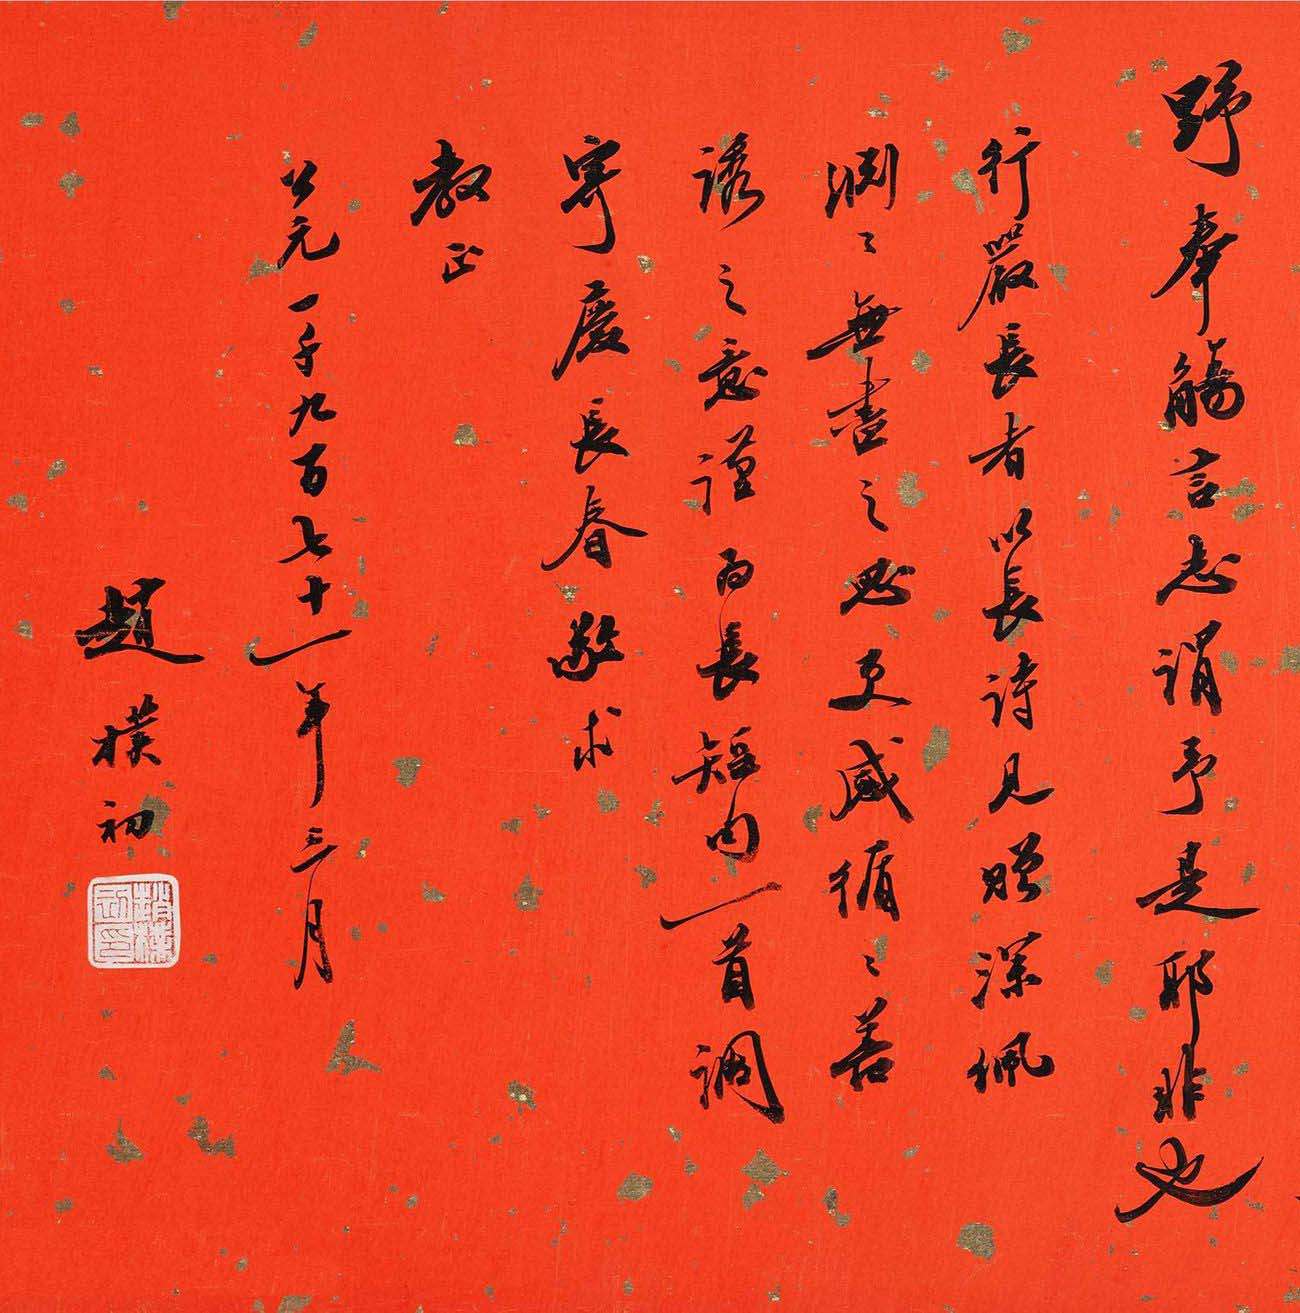 野奉觴言志謂予是耶非也
行嚴長者以長詩見贈深佩
淵〻無盡之思更感循〻善
誘之意謹為長短句一首調
寄慶長春敬求
教正
公元一千九百七十一年三月
趙樸初
趙樸初印